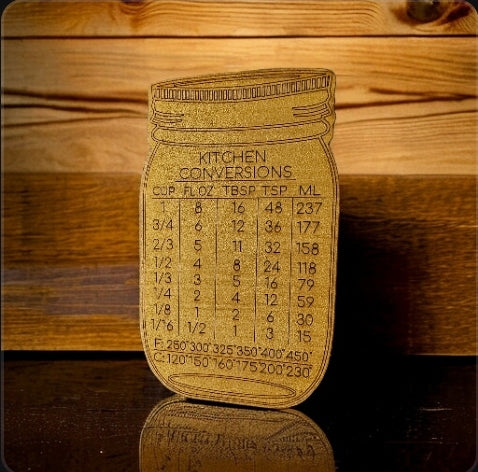 KITCHEN
CONVERSIONS
CUP FL OZ TBSP TSP ML
1 8 16 48 237
3/4 6 12 36 177
2/3 5 11 32 158
1/2 4 8 24 118
1/3 3 5 16 79
1/4 2 4 12 59
1/8 1 2 6 30
1/16 1/2 1 3 15
F: 250° 300° 325° 350° 400° 450°
C: 120° 150° 160° 175° 200° 230°